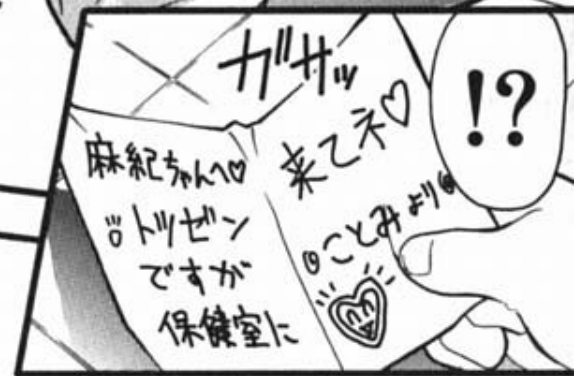 !?
ガサッ
麻紀ちゃんへ♡
トツゼン
ですが
保健室に
来てネ♡
ことみより